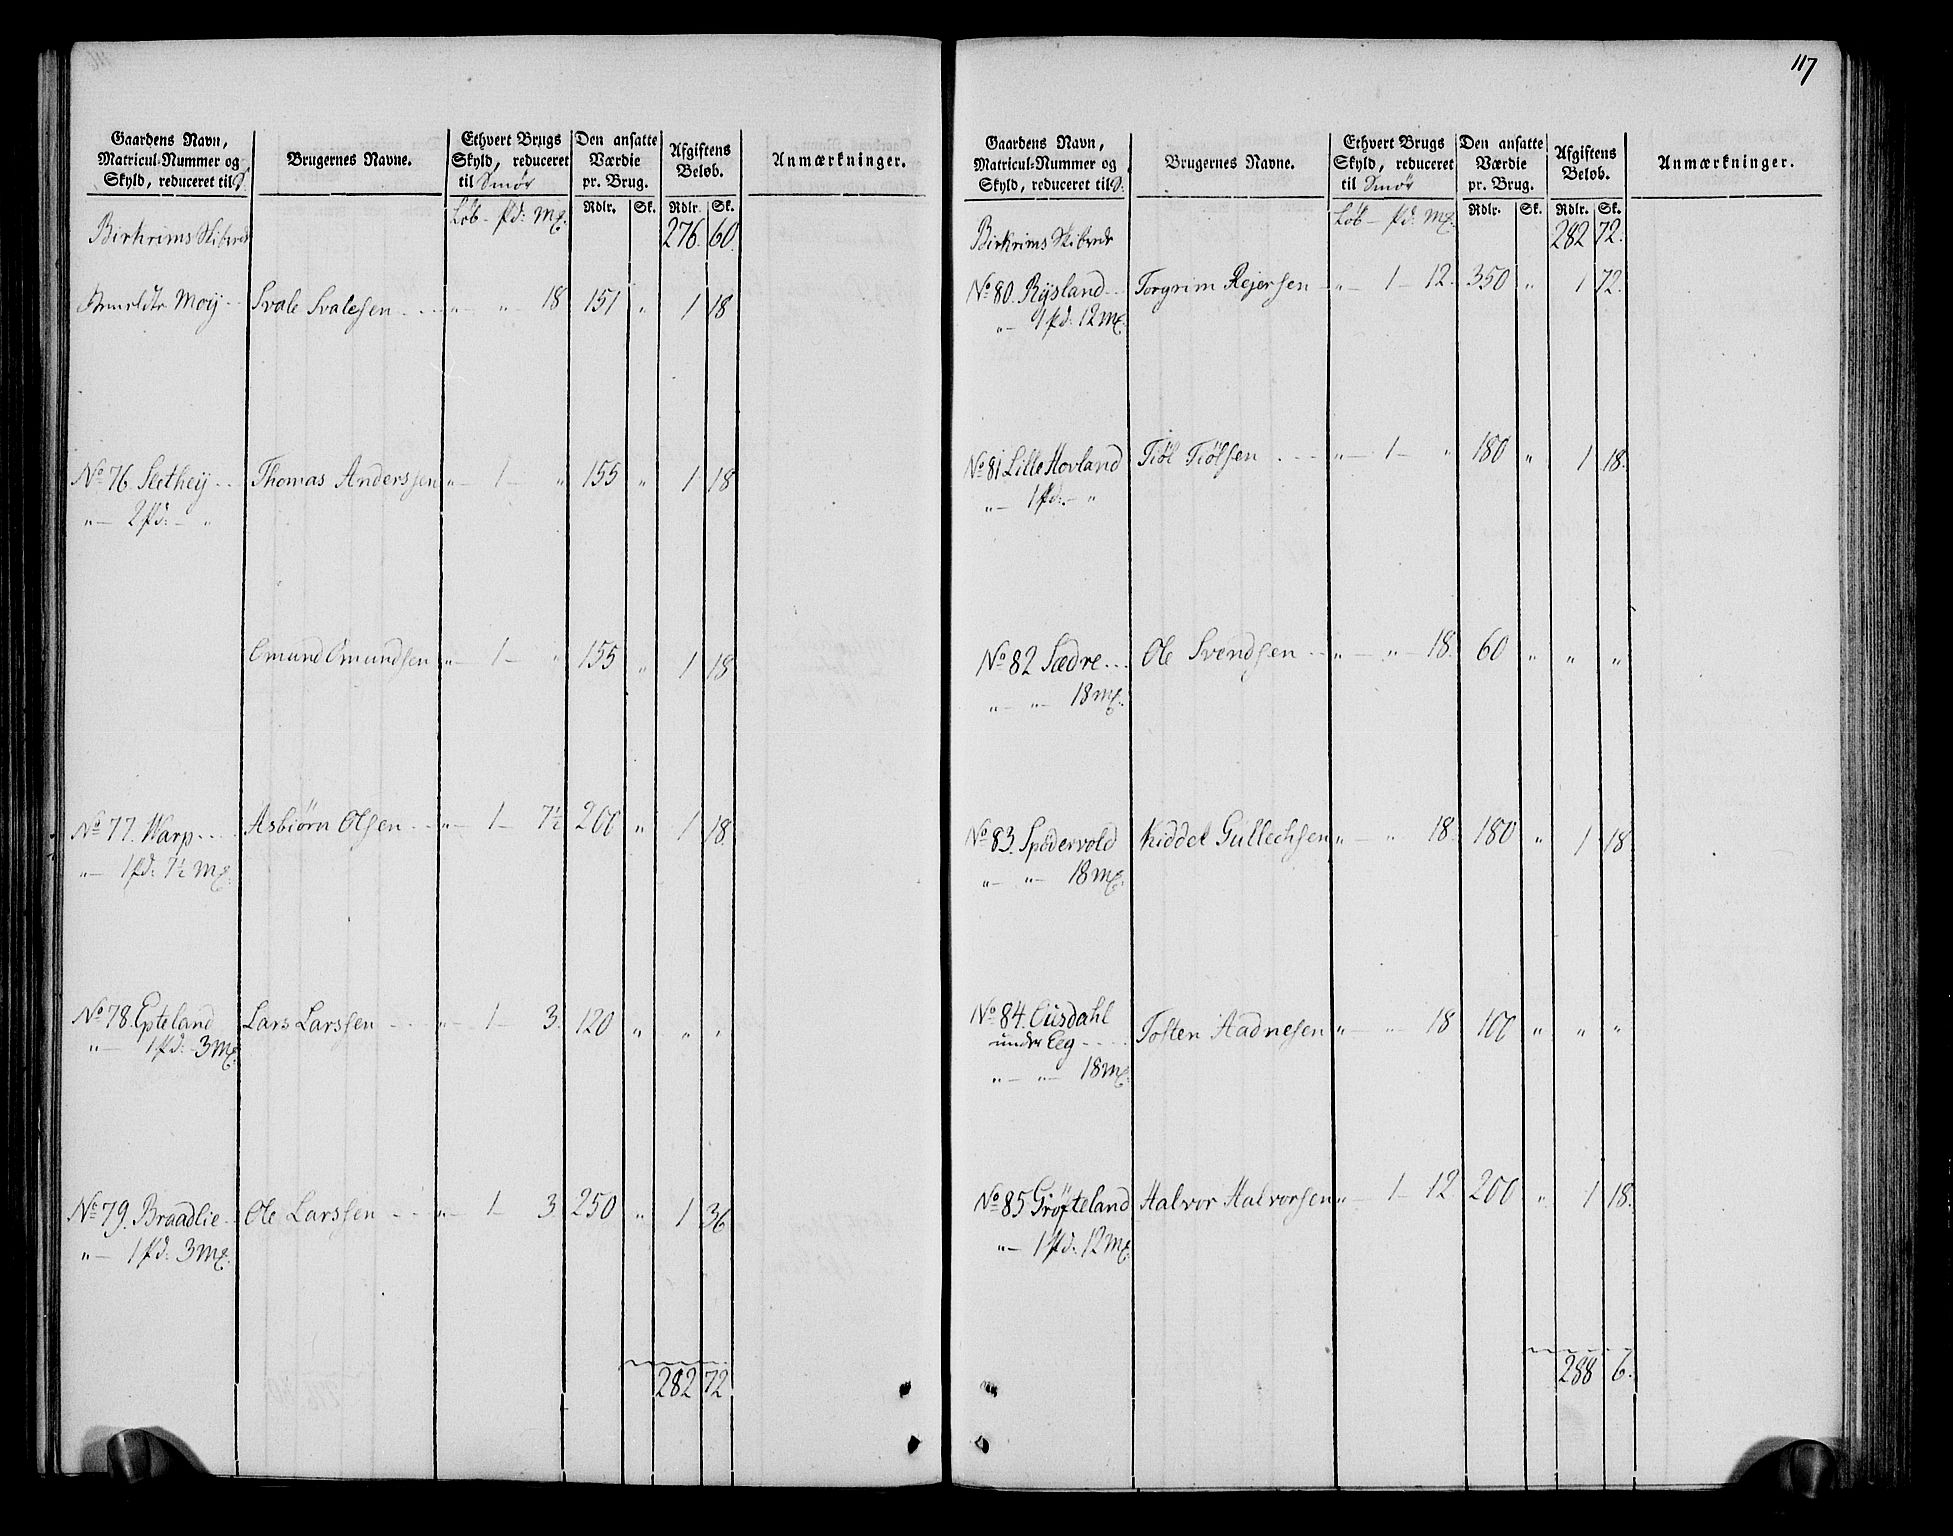 Gaardens Navn, Matricul-Nummer og Skyld, reduceret til S. | Brugernes Navne. | Ethvert Brugs Skyld, reduceret til Smør | Den ansatte Værdie pr. Brug. | Afgiftens Beløb. | Anmærkninger.
Løb - Pd: Mk. | Rdlr. | Sk. | Rdlr. | Sk.
Birkrims Skibrede 276. 60.
Moij - Svale Svalesen - - - „ — „ — 18 151 „ 1 18
No 76. Sletheij - - Thomas Anderssen „ — 1 — „ 155 „ 1 18
„ — 2 Pd: — „
Omund Omundsen „ — 1 — „ 155 „ 1 18
No 77. Warp - - - Asbiørn Olsen - - „ — 1 — 7½ 200 „ 1 18.
„ — 1 Pd: 7½ Mk.
No 78. Epteland Lars Larssen - - - „ — 1 — 3. 120 „ „ „
„ — 1 Pd: 3 Mk.
No 79. Braadlie - - Ole Larssen - - - „ — 1 — 3 250 „ 1 36
„ — 1 Pd: 3 Mk.
282 72
117
Gaardens Navn, Matricul-Nummer og Skyld, reduceret til S. | Brugernes Navne. | Ethvert Brugs Skyld, reduceret til Smør | Den ansatte Værdie pr. Brug. | Afgiftens Beløb. | Anmærkninger.
Løb - Pd: Mk. | Rdlr. | Sk. | Rdlr. | Sk.
Birkrims Skibrede 282 72.
No 80. Rysland - - Torgrim Rejersen - „ — 1 — 12. 350 „ 1 72.
„ — 1 Pd: 12 Mk.
No 81 Lille Hovland Tiøl Tiølsen - - - „ — 1 — „ 180 „ 1 18.
„ — 1 Pd: — „
No 82 Sædre - - - Ole Svendsen - - „ — „ — 18. 60 „ „ „
„ — „ — 18 Mk.
No 83. Spødervold Kiddel Gullechsen „ — „ 18. 180 „ 1 18
„ — „ — 18 Mk.
No 84. Eusdahl Tosten Aadnesen „ — „ — 18 100 „ „ „
under Eeg - - - -
„ — „ — 18 Mk.
No 85 Grøfteland Halvor Halvorsen „ — 1 — 12 200 „ 1 18.
„ — 1 Pd: 12 Mk.
288 6.